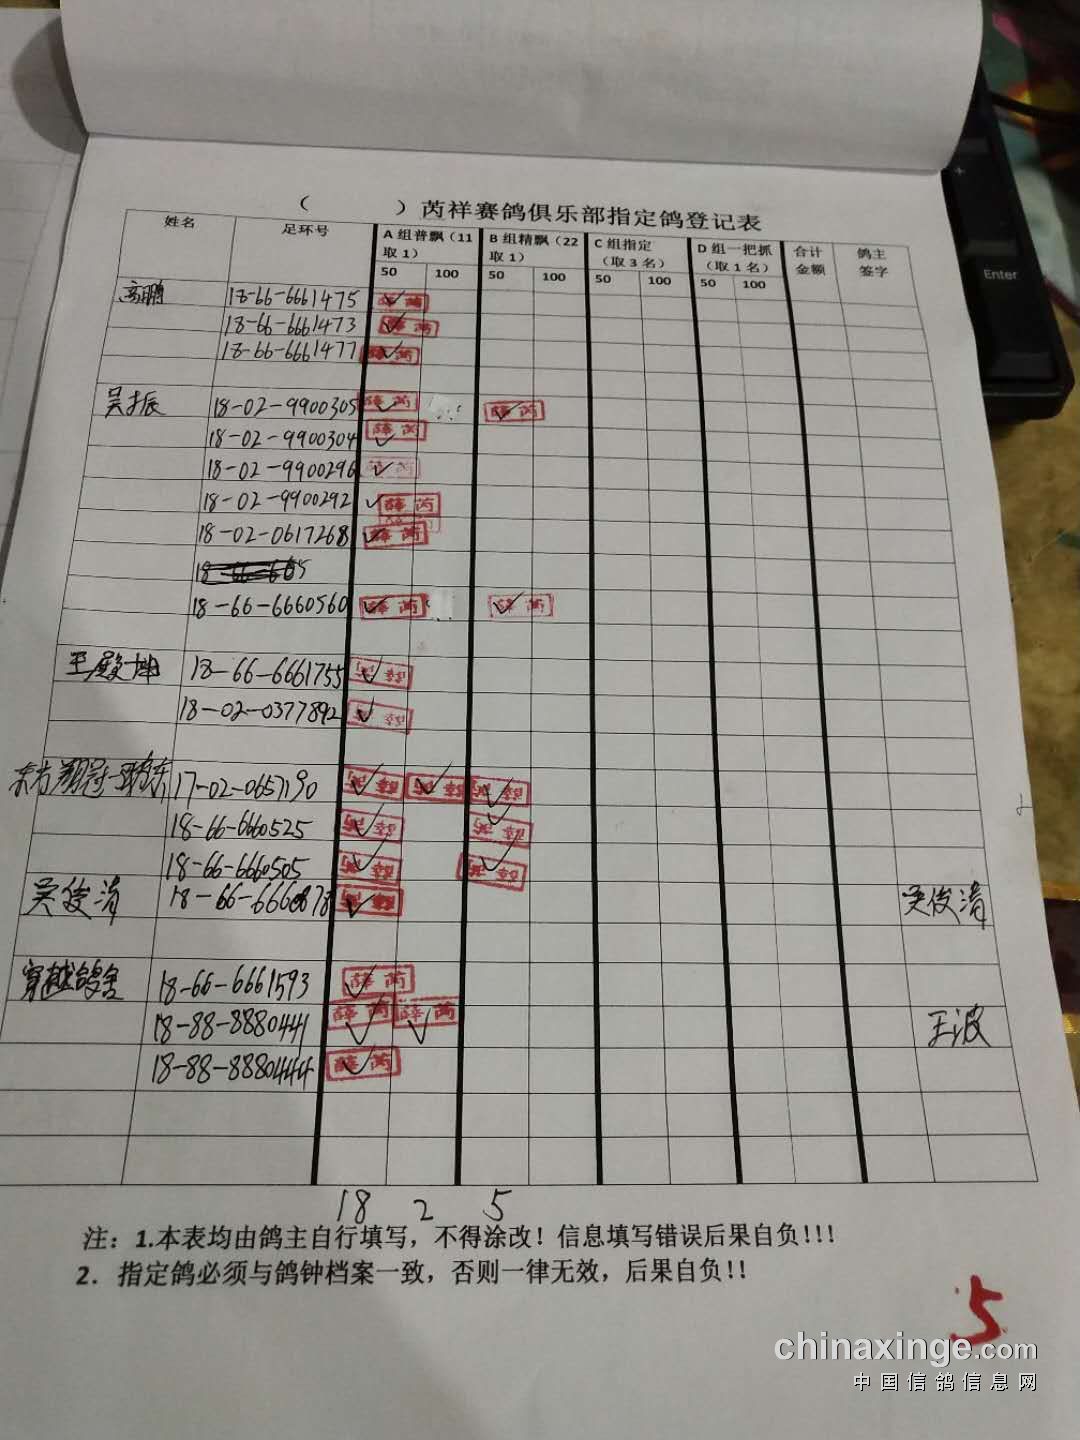 （ ）芮祥赛鸽俱乐部指定鸽登记表
姓名 足环号 A 组普飘（11取 1） B 组精飘（22取 1） C 组指定（取 3 名） D 组一把抓（取 1 名） 合计金额 鸽主签字
50 100 50 100 50 100 50 100
高鹏 18-66-6661475 薛芮
18-66-6661473 薛芮
18-66-6661477 薛芮
吴振 18-02-9900305 薛芮 薛芮
18-02-9900304 薛芮
18-02-9900296 薛芮
18-02-9900292 薛芮
18-02-0617268 薛芮
18-66-6660560 薛芮 薛芮
王殿坤 18-66-6661755 薛芮
18-02-0377892 薛芮
东方翔冠 17-02-0657190 薛芮 薛芮 薛芮
18-66-6660525 薛芮 薛芮
18-66-6660505 薛芮 薛芮
吴俊清 18-66-6660878 薛芮 吴俊清
穿越鸽舍 18-66-6661593 薛芮
18-88-8880441 薛芮 薛芮 王波
18-88-8880444 薛芮
18 2 5
注：1.本表均由鸽主自行填写，不得涂改！信息填写错误后果自负!!!
2．指定鸽必须与鸽钟档案一致，否则一律无效，后果自负!!
5
Enter
chinaxinge.com
中国信鸽信息网